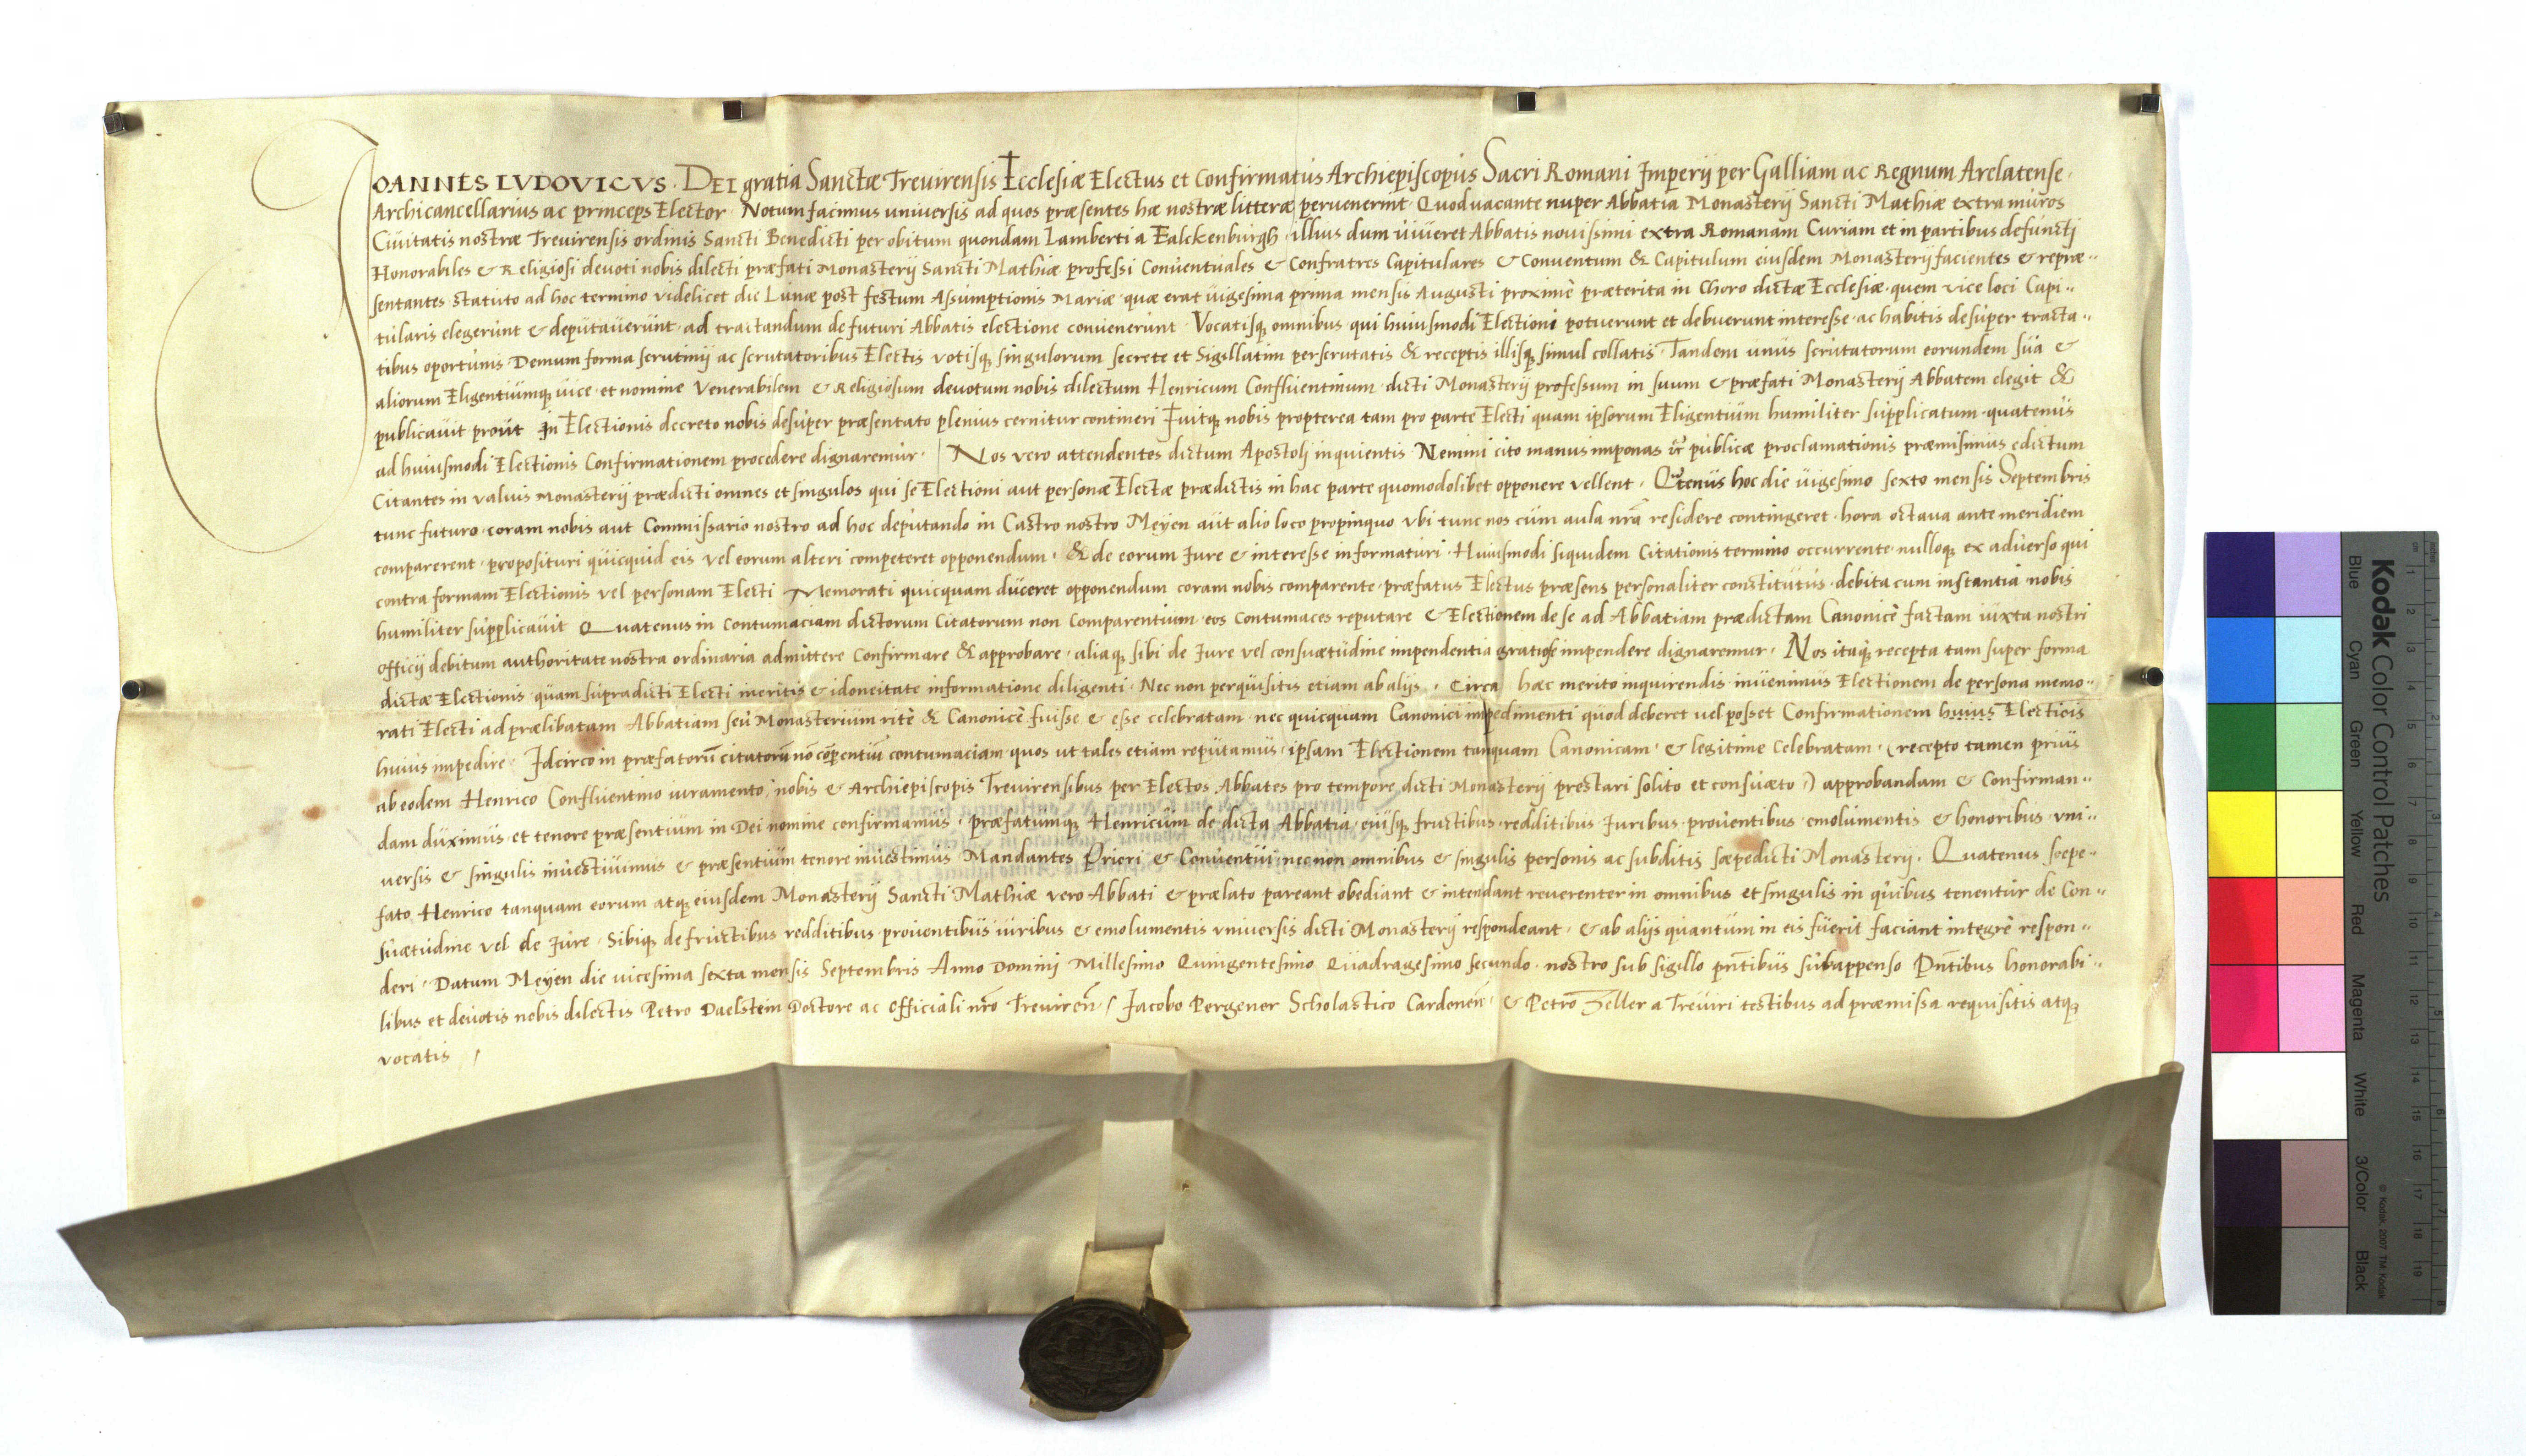 IOANNES LVDOVICVS. DEI gratia Sanctæ Treuirensis Ecclesiæ Electus et Confirmatus Archiepiscopus Sacri Romani Imperij per Galliam ac Regnum Arelatense.
Archicancellarius ac princeps Elector. Notum facimus universis ad quos præsentes hæ nostræ litteræ peruenerint. Quod vacante nuper Abbatia Monasterij Sancti Mathiæ extra muros
Ciuitatis nostræ Treuirensis ordinis Sancti Benedicti per obitum quondam Lamberti a Falckenburgh. illius dum uiueret Abbatis nouissimi extra Romanam Curiam et in partibus defuncti
Honorabiles & Religiosi deuoti nobis dilecti præfati Monasterij Sancti Mathiæ professi Conuentuales & Confratres Capitulares & Conuentum & Capitulum eiusdem Monasterij facientes & repræ-
sentantes statuto ad hoc termino videlicet die Lunæ post festum Assumptionis Mariæ quæ erat uigesima prima mensis Augusti proximè præterita in Choro dictæ Ecclesiæ. quem vice loci Capi-
tularis elegerunt & deputauerunt. ad tractandum de futuri Abbatis electione conuenerunt. Vocatisq; omnibus qui huiusmodi Electioni potuerunt et debuerunt interesse. ac habitis desuper tracta-
tibus oportunis Demum forma scrutinij ac scrutatoribus Electis votisq; singulorum secrete et Sigillatim perscrutatis & receptis illisq; simul collatis. Tandem unus scrutatorum eorundem sua &
aliorum Eligentiumq; uice. et nomine Venerabilem & Religiosum deuotum nobis dilectum Henricum Confluentinum dicti Monasterij professum in suum & præfati Monasterij Abbatem elegit &
publicauit prout in Electionis decreto nobis desuper præsentato plenius cernitur contineri Fuitq; nobis propterea tam pro parte Electi quam ipsorum Eligentium humiliter supplicatum. quatenus
ad huiusmodi Electionis Confirmationem procedere dignaremur. Nos vero attendentes dictum Apostoli inquientis Nemini cito manus imponas publicæ proclamationis præmisimus edictum
Citantes in valuis Monasterij prædicti omnes et singulos qui se Electioni aut personæ Electæ prædictis in hac parte quomodolibet opponere vellent. Qtenus hoc die uigesimo sexto mensis Septembris
tunc futuro. coram nobis aut Commissario nostro ad hoc deputando in Castro nostro Meyen aut alio loco propinquo vbi tunc nos cum aula nrã residere contingeret. hora octaua ante meridiem
comparerent. proposituri quicquid eis vel eorum alteri competeret opponendum. & de eorum Iure & interesse informaturi. Huiusmodi siquidem Citationis termino occurrente. nulloq; ex aduerso qui
contra formam Electionis vel personam Electi Memorati quicquam duceret opponendum coram nobis comparente. præfatus Electus præsens personaliter constitutus. debita cum instantia nobis
humiliter supplicauit Quatenus in contumaciam dictorum Citatorum non Comparentium. eos Contumaces reputare & Electionem de se ad Abbatiam prædictam Canonicè factam iuxta nostri
officij debitum authoritate nostra ordinaria admittere Confirmare & approbare. aliaq; sibi de Iure vel consuætudine impendentia gratiose impendere dignaremur. Nos itaq; recepta tam super forma
dictæ Electionis quam supradicti Electi meritis & idoneitate informatione diligenti. Nec non perquisitis etiam ab alijs. Circa hæc merito inquirendis inuenimus Electionem de persona memo-
rati Electi ad prælibatam Abbatiam seu Monasterium ritè & Canonicè fuisse & esse celebratam. nec quicquam Canonici impedimenti quod deberet uel posset Confirmationem huius Electiõis
huius impedire. Idcirco in præfatorũ citatorũ nõ cõpentiũ contumaciam quos ut tales etiam reputamus. ipsam Electionem tanquam Canonicam. & legitime Celebratam. (recepto tamen prius
ab eodem Henrico Confluentino iuramento nobis & Archiepiscopis Treuirensibus per Electos Abbates pro tempore dicti Monasterij prestari solito et consuæto) approbandam & Confirman-
dam duximus. et tenore præsentium in Dei nomine confirmamus. præfatumq; Henricum de dicta Abbatia. eiusq; fructibus. redditibus Iuribus. prouentibus emolumentis & honoribus vni-
uersis & singulis inuestiuimus & præsentium tenore inuestimus Mandantes Priori & Conuentui necnon omnibus & singulis personis ac subditis sæpedicti Monasterij. Quatenus sæpe-
fato Henrico tanquam eorum atq; eiusdem Monasterij Sancti Mathiæ vero Abbati & prælato pareant obediant & intendant reuerenter in omnibus et singulis in quibus tenentur de Con-
suætudine vel de Iure. Sibiq; de fructibus redditibus prouentibus iuribus & emolumentis vniuersis dicti Monasterij respondeant. & ab alijs quantum in eis fuerit faciant integrè respon-
deri. Datum Meyen die vicesima sexta mensis Septembris Anno Domini Millesimo Quingentesimo Quadragesimo secundo. nostro sub sigillo pñtibus subappenso Pñtibus honorabi-
libus et deuotis nobis dilectis Petro Daelstein Doctore ac Officiali nrõ Treuireñ / Jacobo Pergener Scholastico Cardoneñ. & Petro Zeller a Treuiri testibus ad præmissa requisitis atq;
vocatis /
Kodak Color Control Patches
Blue Cyan Green Yellow Red Magenta White 3/Color Black
© Kodak, 2007 TM: Kodak